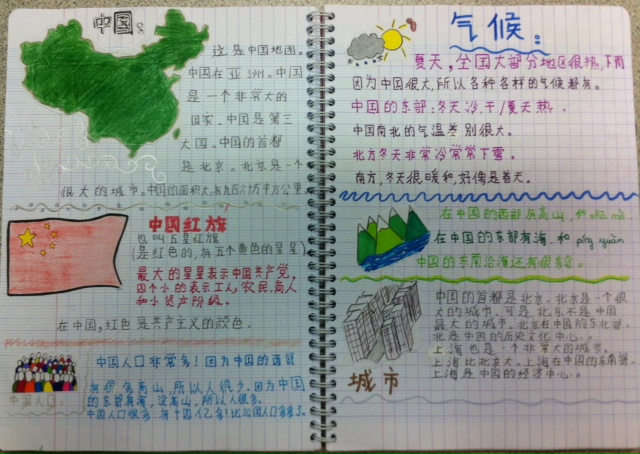 中国
这是中国地图。
中国在亚洲。中国
是一个非常大的
国家。中国是第三
大国。中国的首都
是北京。北京是一个
很大的城市。中国的面积大,有九百六十万平方公里。
中国红旗
也叫五星红旗
(是红色的,有五个黄色的星星)
最大的星星表示中国共产党,
四个小的表示工人,农民,商人
和小资产阶级。
在中国,红色是共产主义的颜色。
中国人口非常多!因为中国的西部
有很多高山,所以人很少。因为中国
的东部有海,没高山,所以人很多。
中国人口很多
中国人口
气候:
夏天,全国大部分地区很热,下雨
因为中国很大,所以各种各样的气候都有。
中国的东部:冬天冷,干/夏天热。
中国南北的气温差别很大。
北方冬天非常冷常常下雪。
南方,冬天很暖和,好像是春天。
在中国的西部有高山,和
在中国的东部有海,和 píng yuán
中国的东南沿海还有很多
中国的首都是北京。北京是一个很
大的城市。可是北京不是中国
最大的城市。北京在中国的东北部。
北京是中国的历史文化中心。
上海也是一个非常大的城市。
上海比北京大。上海在中国的东南部。
上海是中国的经济中心。
城市